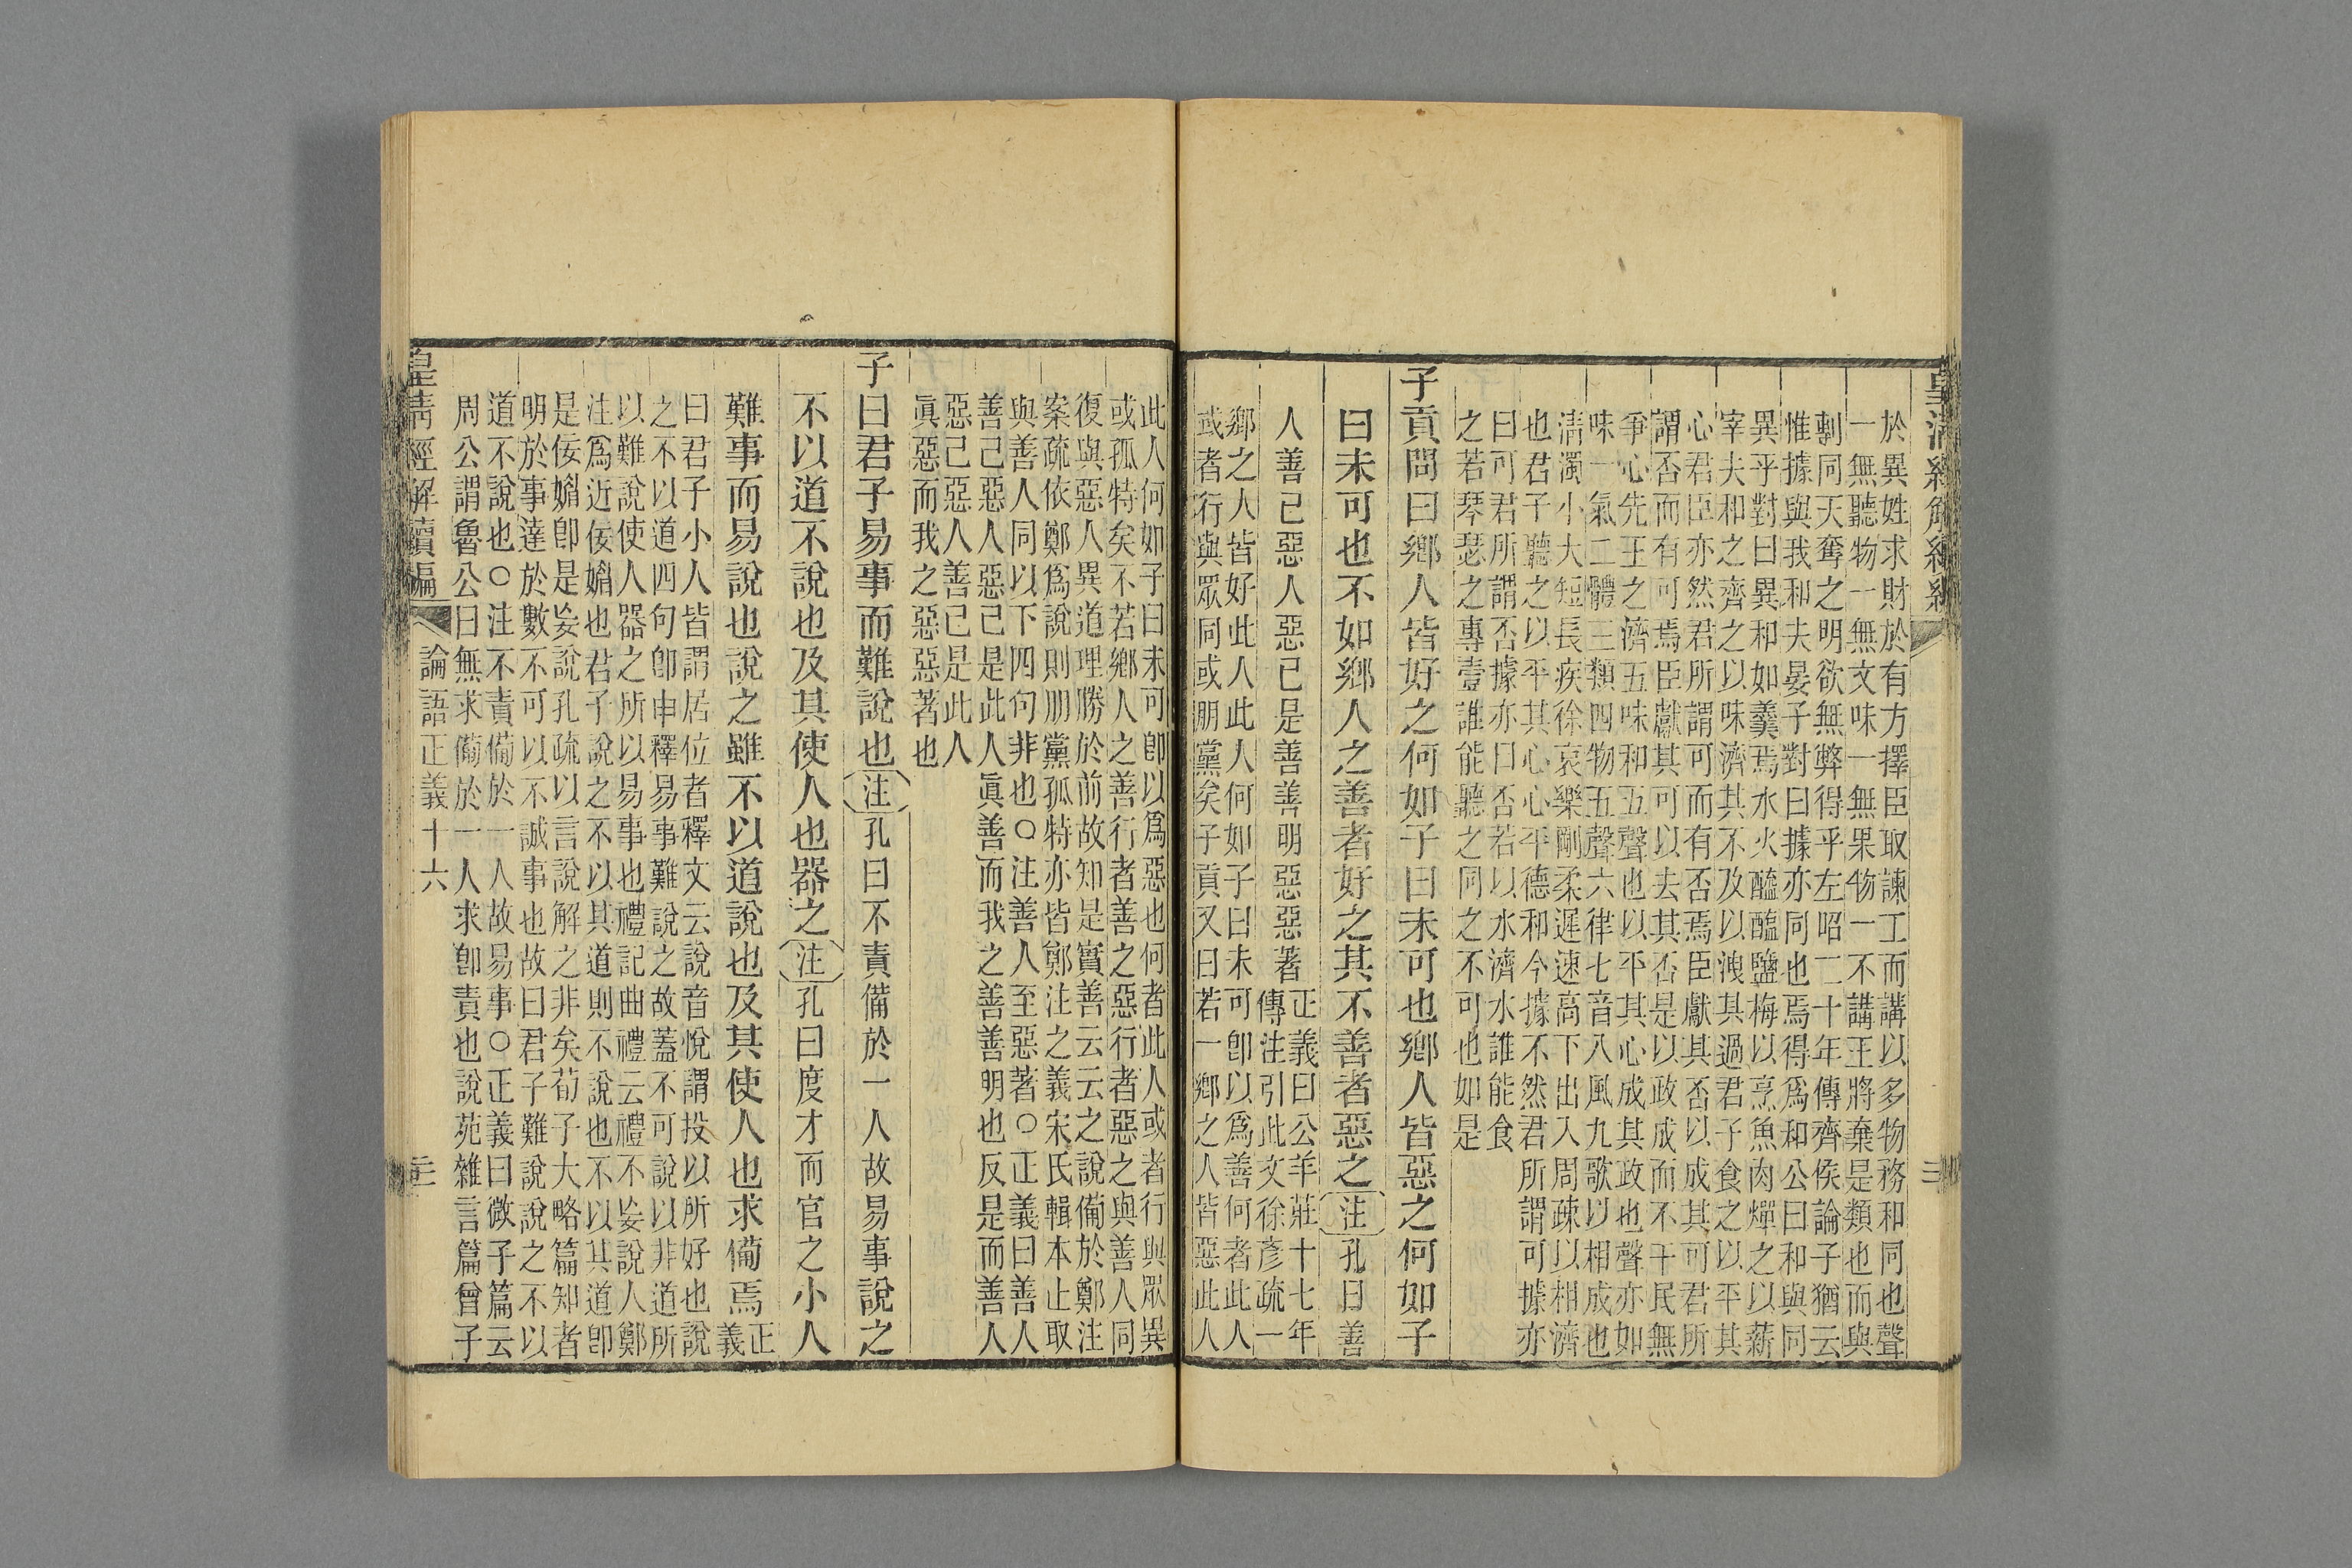 皇清經解續編
於異姓求財於有方擇臣取諫工而講以多物務和同也聲
一無聽物一無文味一無果物一不講王將棄是類也而與
剸同天奪之明欲無弊得乎左昭二十年傳齊侯論子猶云
惟據與我和夫晏子對曰據亦同也焉得爲和公曰和與同
異乎對曰異和如羹焉水火醯醢鹽梅以烹魚肉燀之以薪
宰夫和之齊之以味濟其不及以洩其過君子食之以平其
心君臣亦然君所謂可而有否焉臣獻其否以成其可君所
謂否而有可焉臣獻其可以去其否是以政成而不干民無
爭心先王之濟五味和五聲也以平其心成其政也聲亦如
味一氣二體三類四物五聲六律七音八風九歌以相成也
淸濁小大短長疾徐哀樂剛柔遲速高下出入周疎以相濟
也君子聽之以平其心心平德和今據不然君所謂可據亦
曰可君所謂否據亦曰否若以水濟水誰能食
之若琴瑟之專壹誰能聽之同之不可也如是
子貢問曰鄉人皆好之何如子曰未可也鄉人皆惡之何如子
曰未可也不如鄉人之善者好之其不善者惡之注孔曰善
人善已惡人惡已是善善明惡惡著
正義曰公羊莊十七年
傳注引此文徐彥疏一
鄉之人皆好此人此人何如子曰未可卽以爲善何者此人
或者行與眾同或朋黨矣子貢又曰若一鄉之人皆惡此人
此人何如子曰未可卽以爲惡也何者此人或者行與眾異
或孤特矣不若鄉人之善行者善之惡行者惡之與善人同
復與惡人異道理勝於前故知是實善云云之說備於鄭注
案疏依鄭爲說則朋黨孤特亦皆鄭注之義宋氏輯本止取
與善人同以下四句非也○注善人至惡著○正義曰善人
善己惡人惡己是此人眞善而我之善善明也反是而善人
惡己惡人善己是此人
眞惡而我之惡惡著也
子曰君子易事而難說也注孔曰不責備於一人故易事說之
不以道不說也及其使人也器之注孔曰度才而官之小人
難事而易說也說之雖不以道說也及其使人也求備焉
正
義
曰君子小人皆謂居位者釋文云說音悅謂投以所好也說
之不以道四句卽申釋易事難說之故蓋不可說以非道所
以難說使人器之所以易事也禮記曲禮云禮不妄說人鄭
注爲近佞媚也君子說之不以其道則不說也不以其道卽
是佞媚卽是妄說孔疏以言說解之非矣荀子大略篇知者
明於事達於數不可以不誠事也故曰君子難說說之不以
道不說也○注不責備於一人故易事○正義曰微子篇云
周公謂魯公曰無求備於一人求卽責也說苑雜言篇曾子
皇清經解續編
論語正義十六